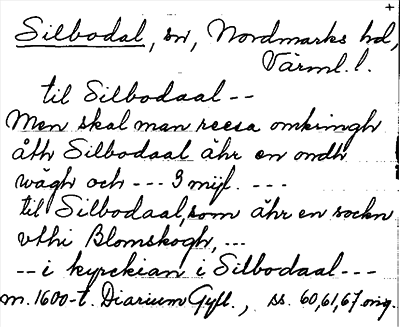 +
Silbodal, sn, Nordmarks hd,
Värml. l.
til Silbodaal --
Men skal man reesa omkringh
åth Silbodaal ähr en ondh
wägh och --- 3 mijl. ---
til Silbodaal, som ähr en sockn
vthi Blomskogh, ---
-- i kyrckian i Silbodaal ---
m. 1600-t. Diarium Gyll., ss. 60,61,67 orig.